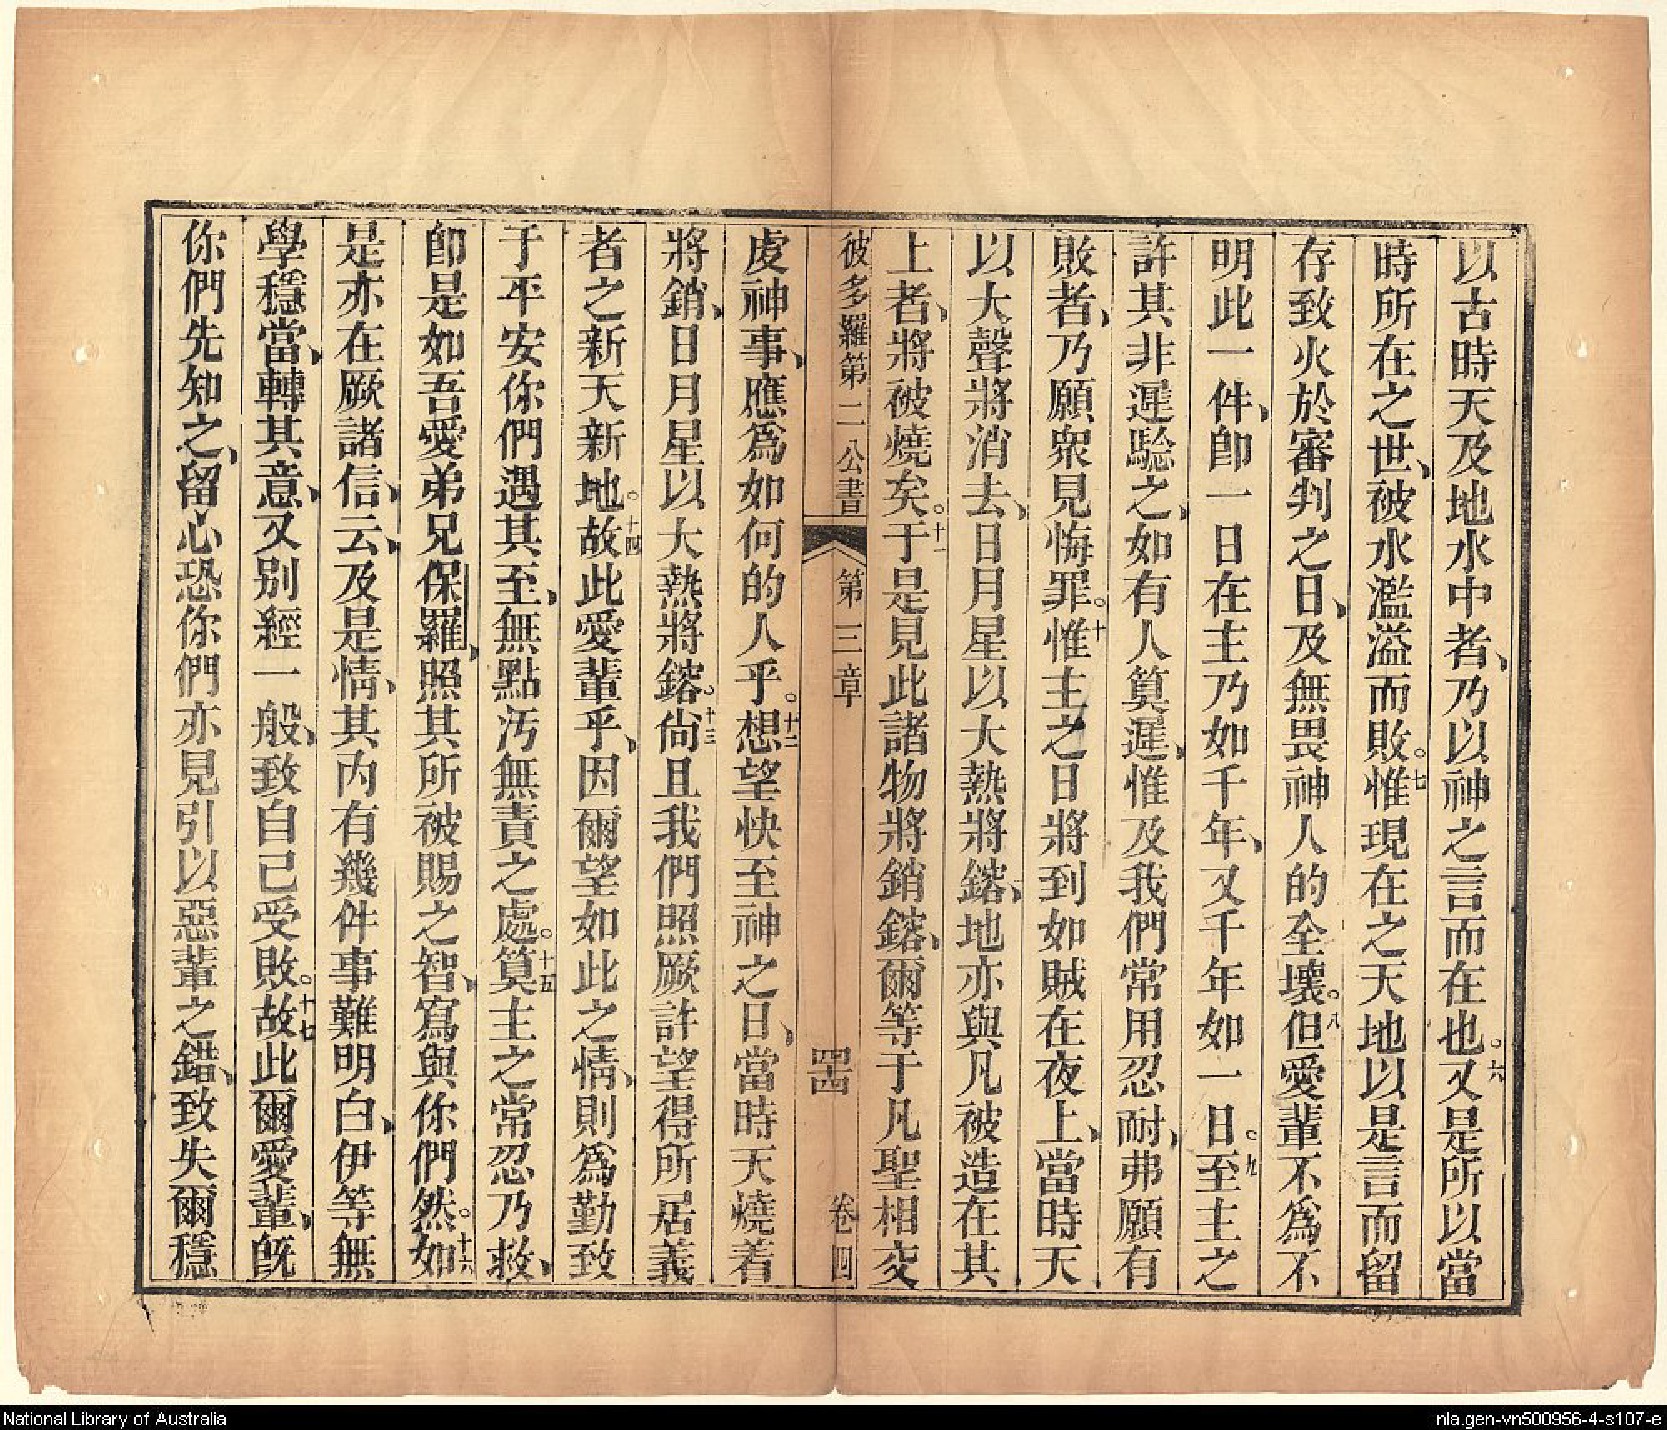 以古時天及地水中者、乃以神之言而在也。六又是所以當
時所在之世、被水濫溢而敗。七惟現在之天地以是言而留
存致火於審判之日、及無畏神人的至壞。八但愛輩不為不
明此一件、即一日在主乃如千年、又千年如一日。九至主之
許其非遲驗之、如有人算遲、惟及我們常用忍耐、弗願有
敗者、乃願衆見悔罪。十惟主之日將到如賊在夜上、當時天
以大聲將消去、日月星以大熱將鎔、地亦與凡被造在其
上者、將被燒矣。十一于是見此諸物將銷鎔、爾等于凡聖相交
彼多羅第二公書
第三章
四十四
卷四
虔神事、應為如何的人乎。十二想望快至神之日、當時天燒着
將銷、日月星以大熱將鎔。十三尚且我們照厥許望得所居義
者之新天新地。十四故此愛輩乎、因爾望如此之情、則為勤致
于平安你們遇其至、無點汚無責之處。十五算主之常忍乃救、
卽是如吾愛弟兄保羅、照其所被賜之智、寫與你們然。十六如
是亦在厥諸信、云、及是情、其內有幾件事難明白、伊等無
學穩當、轉其意、又別經一般、致自己受敗。十七故此爾愛輩、旣
你們先知之、留心恐你們亦見引以惡輩之錯、致失爾穩
National Library of Australia
nla.gen-vn500956-4-s107-e